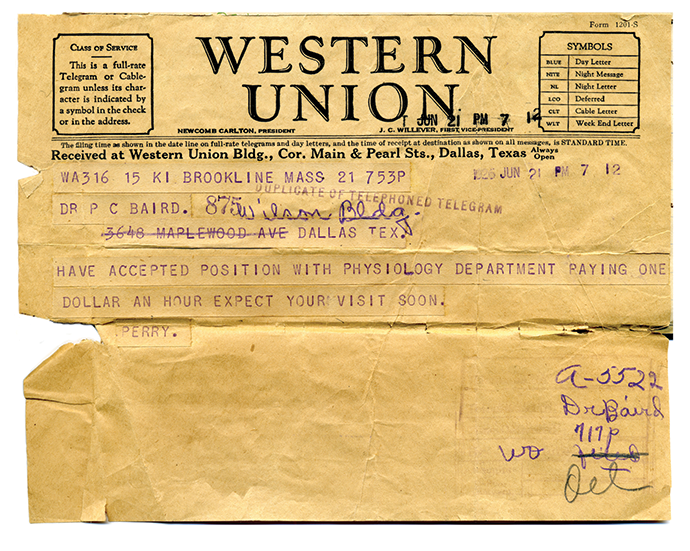 Form 1201-S
CLASS OF SERVICE
This is a full-rate
Telegram or Cable-
gram unless its char-
acter is indicated by
a symbol in the check
or in the address.
WESTERN
UNION
NEWCOMB CARLTON, PRESIDENT
J. C. WILLEVER, FIRST VICE-PRESIDENT
JUN 21 PM 7 12
SYMBOLS
BLUE Day Letter
NITE Night Message
NL Night Letter
LCO Deferred
CLT Cable Letter
WLT Week End Letter
The filing time as shown in the date line on full-rate telegrams and day letters, and the time of receipt at destination as shown on all messages, is STANDARD TIME.
Received at Western Union Bldg., Cor. Main & Pearl Sts., Dallas, Texas Always Open
WA316 15 KI BROOKLINE MASS 21 753P
JUN 21 PM 7 12
DUPLICATE OF TELEPHONED TELEGRAM
DR P C BAIRD. 875 Wilson Bldg.
3648 MAPLEWOOD AVE DALLAS TEX.
HAVE ACCEPTED POSITION WITH PHYSIOLOGY DEPARTMENT PAYING ONE
DOLLAR AN HOUR EXPECT YOUR VISIT SOON.
PERRY.
A-5522
Dr Baird
717P
WO